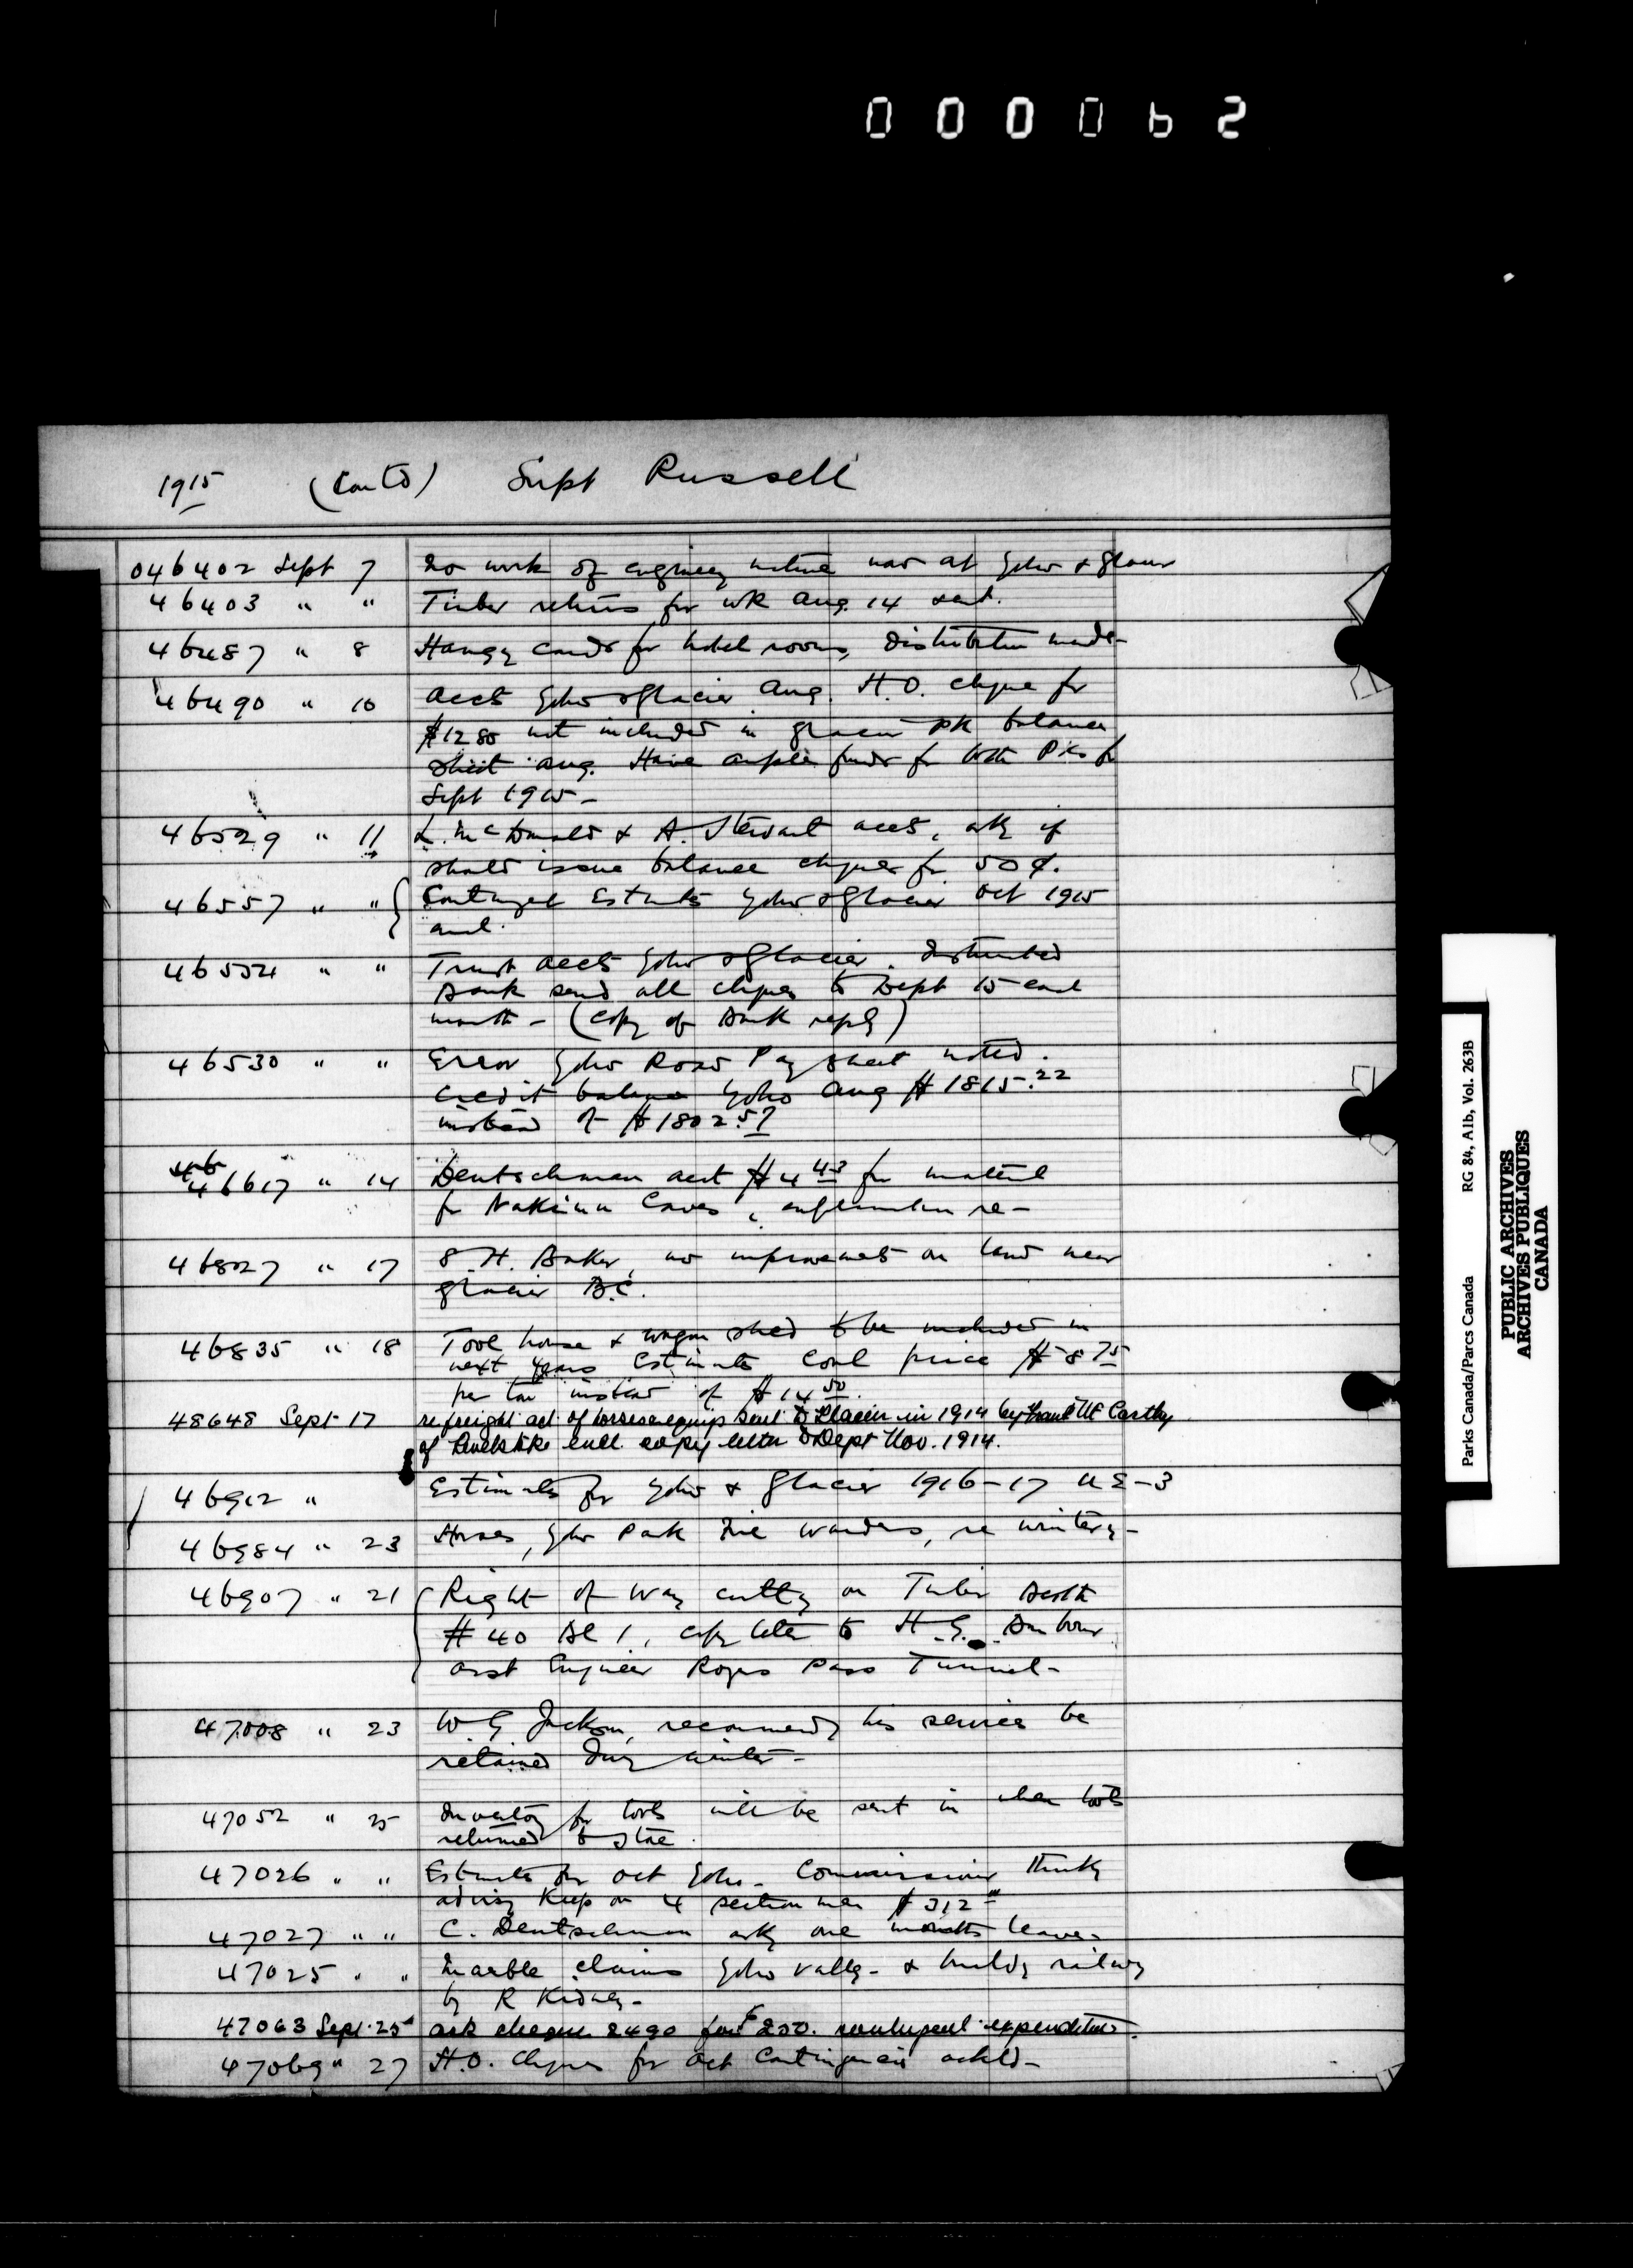 000062
1915 (Contd) Supt Russell
046402 Sept 7 No work of engineeg nature now at Yoho & Glacier
46403 " " Timber returns for wk Aug. 14 sent.
46487 " 8 Hangg cards for hotel rooms, distribution made-
46490 " 10 Accts Yoho & Glacier Aug. H.O. cheque for
$12 80 not included in Glacier Pk balance
sheet Aug. Have ample funds for both Pks for
Sept 1915-
46529 " 11 L. McDonald & A. Stewart accts, askg if
should issue balance cheques for 50¢.
46557 " " Contingt Estimates Yoho & Glacier Oct 1915
encl.
46554 " " Trust accts Yoho & Glacier. Instructed
Bank send all cheques to Dept 15 each
month - (copy of Bank reply)
46530 " " Error Yoho Road Pay sheet noted.
Credit balance Yoho Aug $1815.22
instead of $1802.57
46617 " 14 Deutschman acct $4 43 for material
for Nakimu Caves, explanation re-
46827 " 17 S. H. Baker, no improvements on land near
Glacier B.C.
46835 " 18 Tool house & wagon shed to be included in
next years Estimates Coal price $8 75
per ton instead of $14 50.
48648 Sept 17 re freight act. of horses & equip sent to Glacier in 1914 by Frank McCarthy
of Revelstoke encl. copy letter to Dept Nov. 1914.
46912 " Estimates for Yoho & Glacier 1916-17 U E-3
46984 " 23 Horses, Yoho Park Fire Wardens, re winterg-
46907 " 21 Right of Way cuttg on Timber Berth
#40 Bl 1, copy letter to H. G.
asst Engineer Rogers Pass Tunnel-
47008 " 23 W G Jackson, recommendg his services be
retained durg winter-
47052 " 25 Inventory for tools will be sent in when tools
returned to store.
47026 " " Estimates for Oct Yoho. Commissioner thinks
advisg keep on 4 section men $312
47027 " " C. Deutschman askg one months leave-
47025 " " Marble claims Yoho Valley & buildg railway
by R Kidney-
47063 Sept. 25 ask cheque 2490 for $200. contingent expenditures.
47069 " 27 H.O. Cheques for Oct Contingencies ackld-
Parks Canada/Parcs Canada RG 84, A1b, Vol. 263B
PUBLIC ARCHIVES
ARCHIVES PUBLIQUES
CANADA